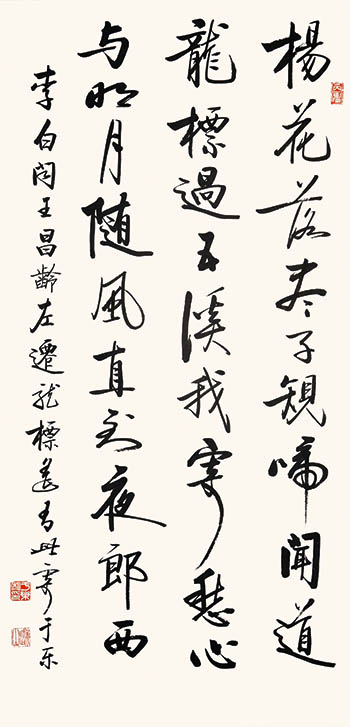 楊花落尽子規啼聞道
龍標過五溪我寄愁心
与明月随風直到夜郎西
李白闻王昌齡左遷龙標遥有此寄于乐